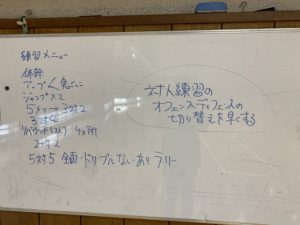 練習メニュー
体幹
アップ 鬼ごっこ
ジャンプ×2
5メン 3対2
3対4
リバウンド(2人) 4ヶ所
2対2
5対5 全面 ドリブルなし・あり ラリー
対人練習の
オフェンスディフェンスの
切り替えを早くする